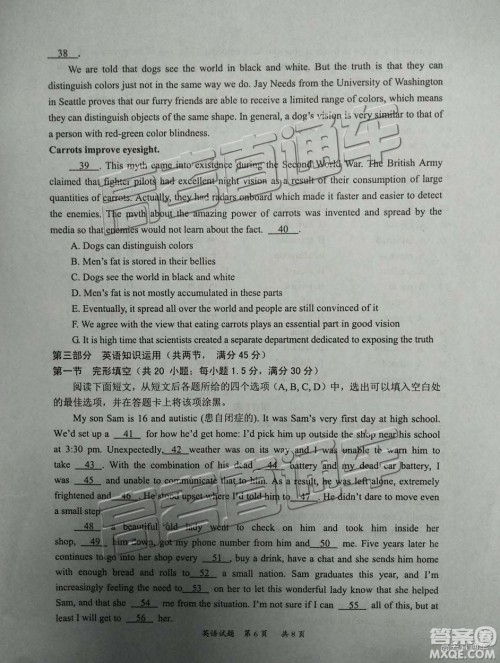 38 .
We are told that dogs see the world in black and white. But the truth is that they can
distinguish colors just not in the same way we do. Jay Needs from the University of Washington
in Seattle proves that our furry friends are able to receive a limited range of colors, which means
they can distinguish objects of the same shape. In general, a dog's vision is very similar to that of
a person with red-green color blindness.
Carrots improve eyesight.
39 . This myth came into existence during the Second World War. The British Army
claimed that fighter pilots had excellent night vision as a result of their consumption of large
quantities of carrots. Actually, they had radars onboard which made it faster and easier to detect
the enemies. The myth about the amazing power of carrots was invented and spread by the
media so that enemies would not learn about the fact. 40 .
A. Dogs can distinguish colors
B. Men's fat is stored in their bellies
C. Dogs see the world in black and white
D. Men's fat is not mostly accumulated in these parts
E. Eventually, it spread all over the world and people are still convinced of it
F. We agree with the view that eating carrots plays an essential part in good vision
G. It is high time that scientists created a separate department dedicated to exposing the truth
第三部分 英语知识运用（共两节，满分 45 分）
第一节 完形填空（共 20 小题；每小题 1.5 分，满分 30 分）
阅读下面短文，从短文后各题所给的四个选项（A, B, C, D）中，选出可以填入空白处
的最佳选项，并在答题卡上将该项涂黑。
My son Sam is 16 and autistic (患自闭症的). It was Sam's very first day at high school.
We'd set up a 41 for how he'd get home: I'd pick him up outside the shop near his school
at 3:30 pm. Unexpectedly, 42 weather was on its way and I was unable to warn him to
take 43 . With the combination of his dead 44 battery and my dead car battery, I
was 45 and unable to communicate that to him. As a result, he was left alone, extremely
frightened and 46 . He stood upset where I'd told him to 47 . He didn't dare to even move
a small step.
48 , a beautiful old lady went to check on him and took him inside her
shop, 49 him down, got my phone number from him and 50 me. Five years later he
continues to go into her shop every 51 , buy a drink, have a chat and come home smiling
with enough bread and rolls to 52 a small nation. Sam graduates this year, and I'm
increasingly feeling the need to 53 on to let this wonderful lady know that she helped
Sam, and that she 54 me from the situation. I'm not sure if I can 55 all this without
getting to 56 her.
英语试题 第 6 页 共 8 页
高考直通车
高考直通车
高考直通车
答案圈
MXQE.COM